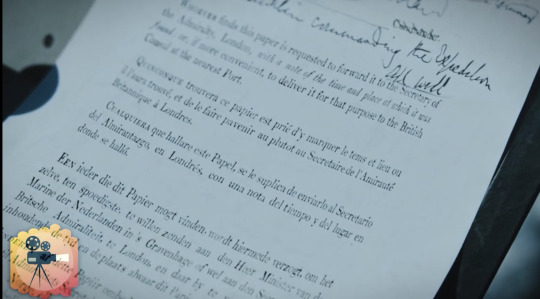 commanding the Expedition
WHOEVER finds this paper is requested to forward it to the Secretary of
the Admiralty, London, with a note of the time and place at which it was
found: or, if more convenient, to deliver it for that purpose to the British
Consul at the nearest Port.
QUICONQUE trouvera ce papier est prié d'y marquer le tems et lieu ou
il l'aura trouvé, et de le faire parvenir au plutot au Secretaire de l'Amirauté
Britannique à Londres.
CUALQUIERA que hallare este Papel, se le suplica de enviarlo al Secretario
del Almirantazgo, en Londrés, con una nota del tiempo y del lugar en
donde se halló.
EEN ieder die dit Papier mogt vinden, wordt hiermede verzogt, om het
zelve, ten spoedigste, te willen zenden aan den Heer Minister van de
Marine der Nederlanden in 's Gravenhage of wel aan den
Britsche Admiraliteit, te London, en daar by te
inhoudende de tyd en de plaats alwaar dit Papier